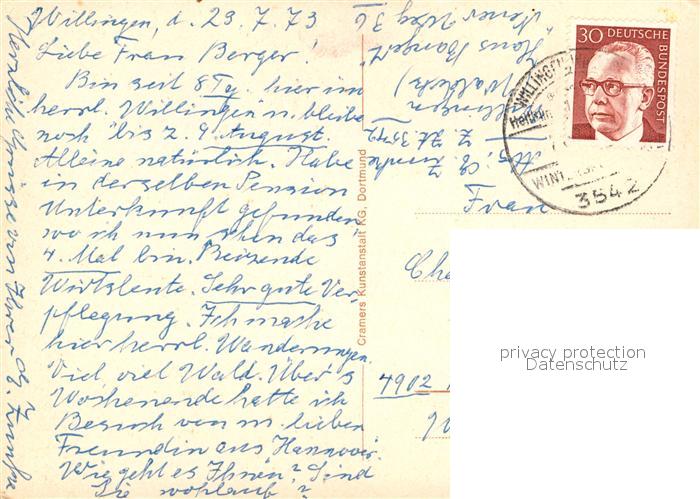 Willingen, d. 23.7.73
Liebe Frau Berger!
Bin seit 8 Tg. hier im
herrl. Willingen u. bleibe
noch bis z. 9. August.
Alleine natürlich. Habe
in derselben Pension
Unterkunft gefunden
wo ich nun schon das
4. Mal bin. Reizende
Wirtsleute. Sehr gute Ver-
pflegung. Ich mache
hier herrl. Wanderungen.
Viel, viel Wald. Über's
Wochenende hatte ich
Besuch von m. lieben
Freundin aus Hannover.
Wie geht es Ihnen? Sind
Sie wohlauf?
Herzliche Grüsse von Ihrer
Cramers Kunstanstalt KG, Dortmund
z. Zt. 3542
Willingen
(Waldeck)
Hans
Neuer Weg 36
30 DEUTSCHE
BUNDESPOST
WILLINGEN
3542
Frau
4902
privacy protection
Datenschutz